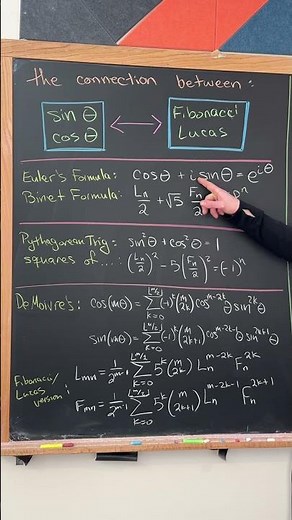 the connection between:
sin θ
cos θ
⟷
Fibonacci
Lucas
Euler's Formula: cosθ + i sinθ = e^{iθ}
Binet Formula: L_n/2 + √5 F_n/2
Pythagorean Trig: sin²θ + cos²θ = 1
squares of ...: (L_n/2)² - 5(F_n/2)² = (-1)^n
DeMoivre's: cos(mθ) = Σ_{k=0}^{⌊m/2⌋} (-1)^k (m 2k) cos^{m-2k}θ sin^{2k}θ
sin(mθ) = Σ_{k=0}^{⌊m/2⌋} (-1)^k (m 2k+1) cos^{m-2k-1}θ sin^{2k+1}θ
Fibonacci/
Lucas
version:
L_{mn} = 1/2^{m-1} Σ_{k=0}^{⌊m/2⌋} 5^k (m 2k) L_n^{m-2k} F_n^{2k}
F_{mn} = 1/2^{m-1} Σ_{k=0}^{⌊m/2⌋} 5^k (m 2k+1) L_n^{m-2k-1} F_n^{2k+1}